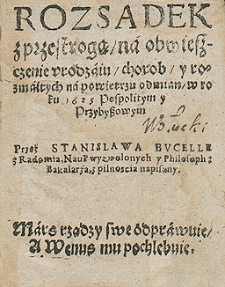 ROZSADEK
z przestrogą / ná obwiesz-
czenie vrodzáiu / chorob / y roz
máitych ná powietrzu odmian / w ro
ku 1625 Pospolitym y
Przybyßowym
Przez STANISLAWA BVCELLE
z Radomia, Nauk wyzwolonych y Philosoph:
Bakalarza, z pilnoscia napisany.
Márs rządzy swe odpráwuie /
A Wenus mu pochlebuie.